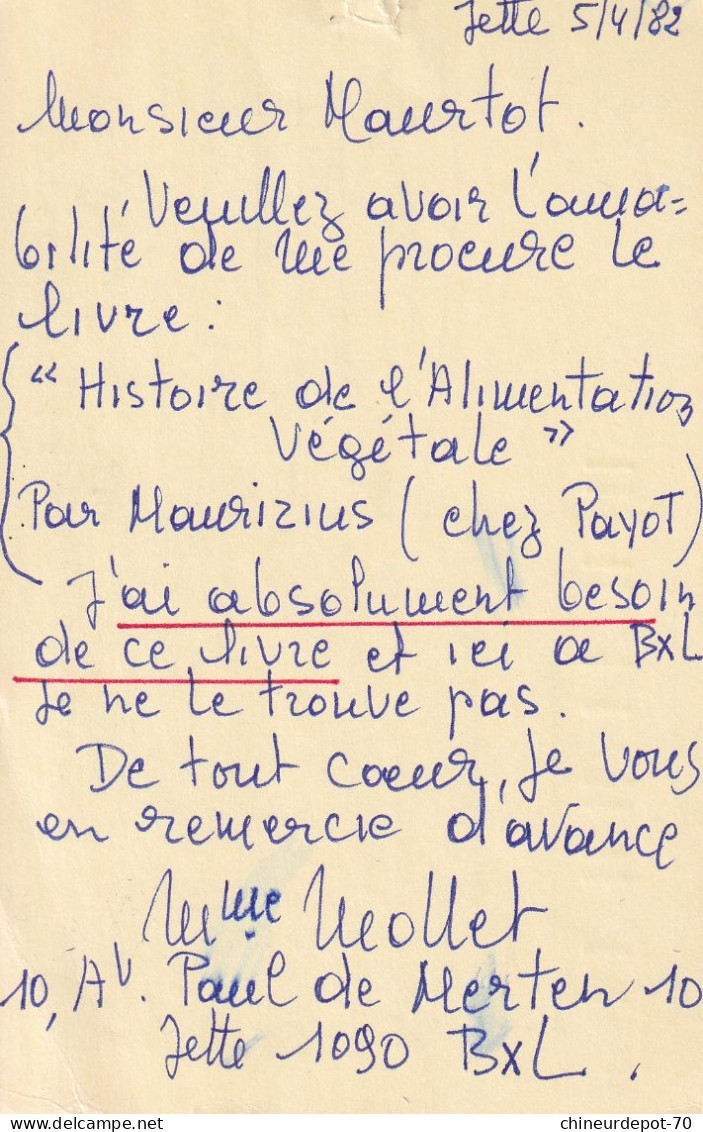 Jette 5/4/82
Monsieur Maurtot.
Veuillez avoir l'ama=
bilité de me procure le
livre :
"Histoire de l'Alimentation
Végétale"
Par Maurizius (chez Payot)
J'ai absolument besoin
de ce livre et ici a BxL
Je ne le trouve pas.
De tout coeur, je vous
en remercie d'avance
Mme Mollet
10, Av. Paul de Merten 10
Jette 1090 BxL.
delcampe.net
chineurdepot-70